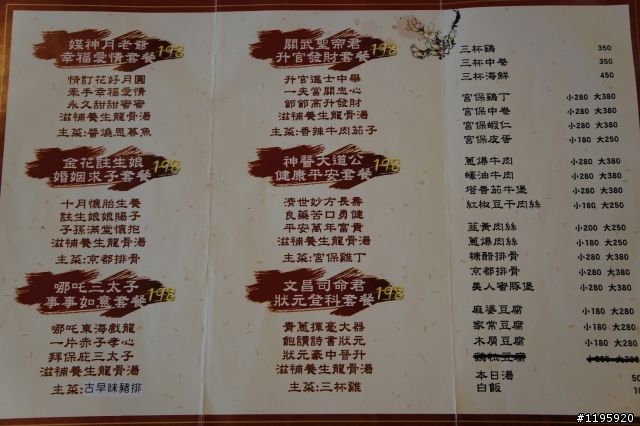 媒神月老爺
幸福愛情套餐 198
情訂花好月圓
牽手幸福愛情
永久甜甜密密
滋補養生龍骨湯
主菜:醬燒思慕魚
金花註生娘
婚姻求子套餐 198
十月懷胎生養
註生娘娘賜子
子孫滿堂懷抱
滋補養生龍骨湯
主菜:京都排骨
哪吒三太子
事事如意套餐 198
哪吒東海戲龍
一片赤子孝心
拜保庇三太子
滋補養生龍骨湯
主菜:古早味豬排
關武聖帝君
升官發財套餐 198
升官進士中舉
一夫當關忠心
節節高升發財
滋補養生龍骨湯
主菜:香辣牛肉茄子
神醫大道公
健康平安套餐 198
濟世妙方長壽
良藥苦口勇健
平安萬年富貴
滋補養生龍骨湯
主菜:宮保雞丁
文昌司命君
狀元登科套餐 198
青蔥揮毫大器
飽讀詩書狀元
狀元豪中晉升
滋補養生龍骨湯
主菜:三杯雞
三杯鷄 350
三杯中卷 350
三杯海鮮 450
宮保鷄丁 小280 大380
宮保中卷 小280 大380
宮保蝦仁 小280 大380
宮保皮蛋 小180 大250
蔥爆牛肉 小280 大380
蠔油牛肉 小280 大380
塔香茄牛堡 小280 大380
紅椒豆干肉絲 小180 大250
韮黃肉絲 小200 大250
蔥爆肉絲 小180 大250
糖醋排骨 小280 大380
京都排骨 小280 大380
美人蜜豚堡 小280 大380
麻婆豆腐 小180 大250
家常豆腐 小180 大250
木屑豆腐 小180 大250
本日湯 50
白飯
#1195920